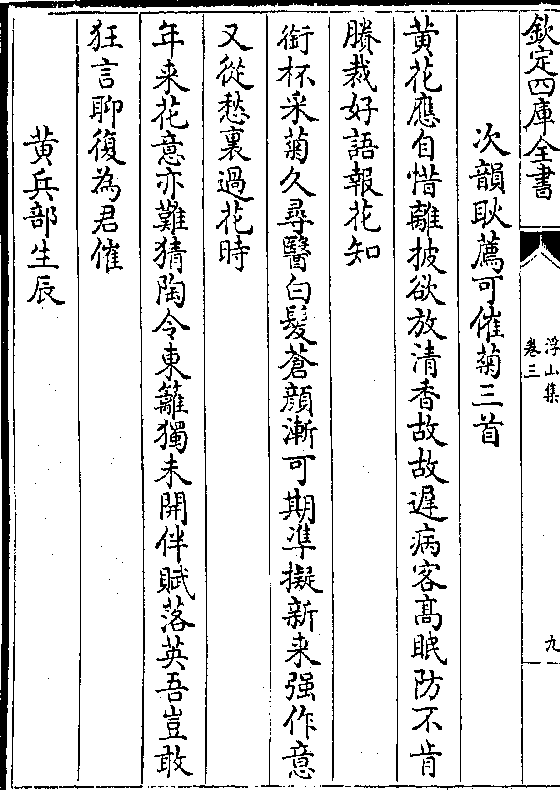 欽定四庫全書
浮山集
卷三
九
次韻耿薦可催菊三首
黄花應自惜離披欲放清香故故遲病客髙眠防不肯
賸裁好語報花知
銜杯采菊久尋醫白髮蒼顔漸可期準擬新来强作意
又從愁裏過花時
年来花意亦難猜陶令東籬獨未開伴賦落英吾豈敢
狂言聊復為君催
黄兵部生辰